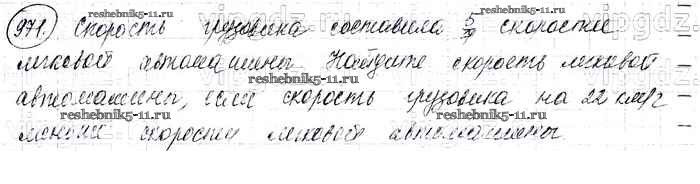 971. Скорость грузовика составила 5/7 скорости
легковой автомашины Найдите скорость легковой
автомашины, если скорость грузовика на 22 км/г
меньше скорости легковой автомашины.
reshebnik5-11.ru
reshebnik5-11.ru
reshebnik5-11.ru
reshebnik5-11.ru
reshebnik5-11.ru
vipgdz.com